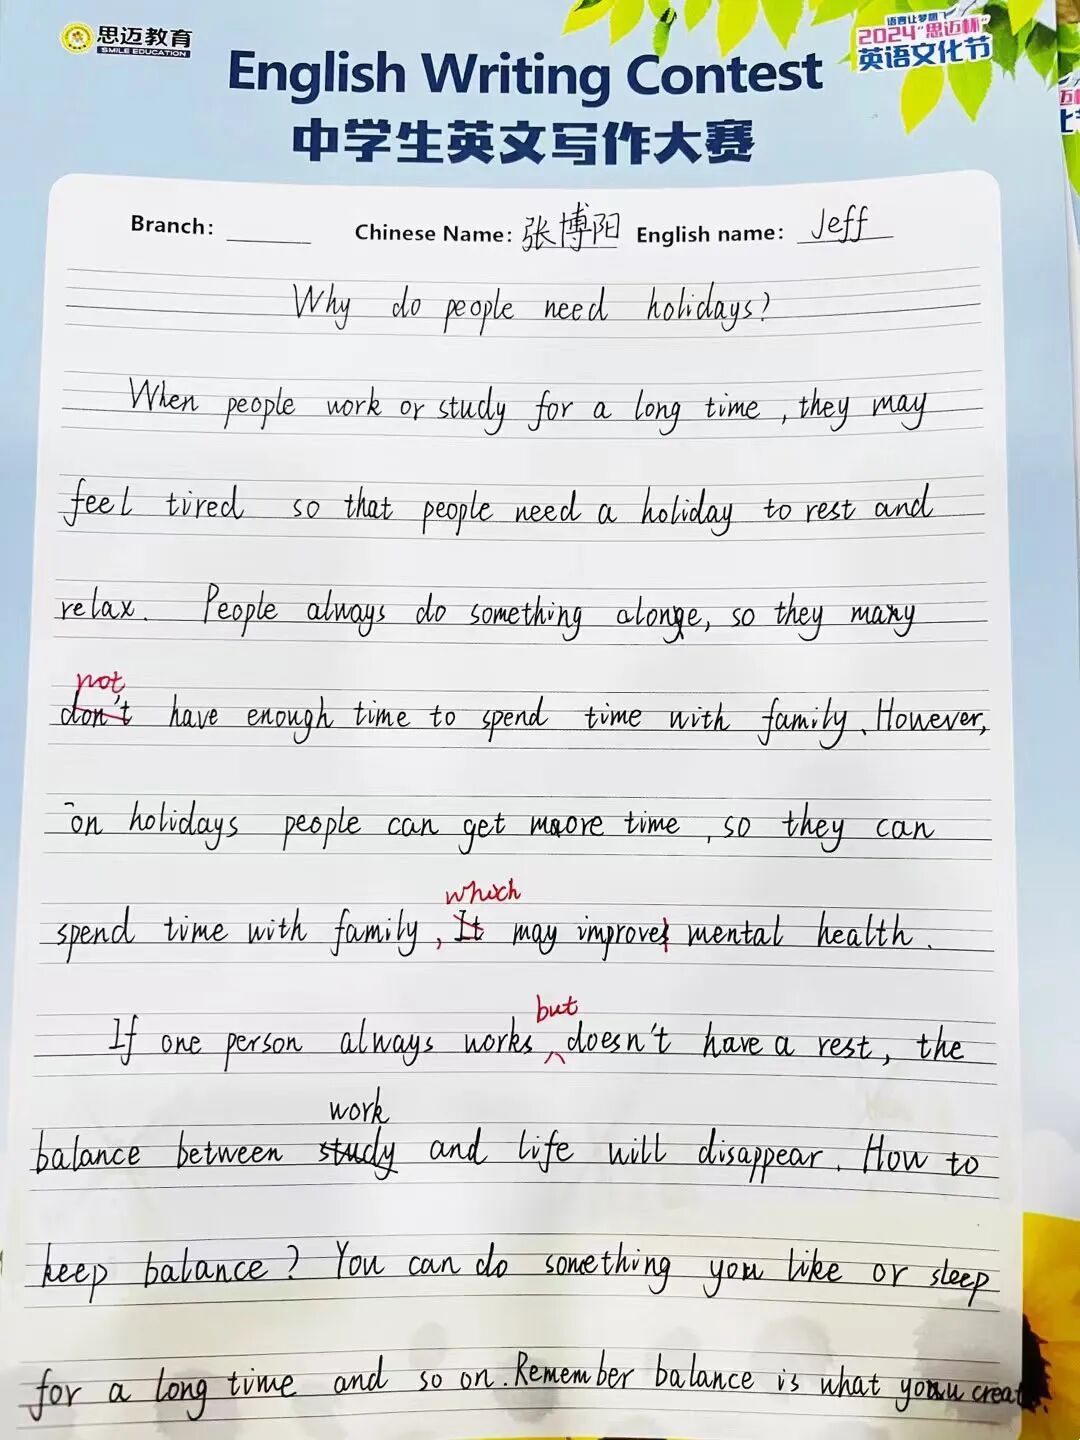 思迈教育
SMILE EDUCATION
语言让梦想飞
2024"思迈杯"
英语文化节
English Writing Contest
中学生英文写作大赛
Branch: Chinese Name: 张博阳 English name: Jeff
Why do people need holidays?
When people work or study for a long time, they may
feel tired so that people need a holiday to rest and
relax. People always do something alonge, so they many
not
don't have enough time to spend time with family. However,
on holidays people can get more time, so they can
which
spend time with family, It may improves mental health.
but
If one person always works doesn't have a rest, the
work
balance between study and life will disappear. How to
keep balance? You can do something you like or sleep
for a long time and so on. Remember balance is what you creat